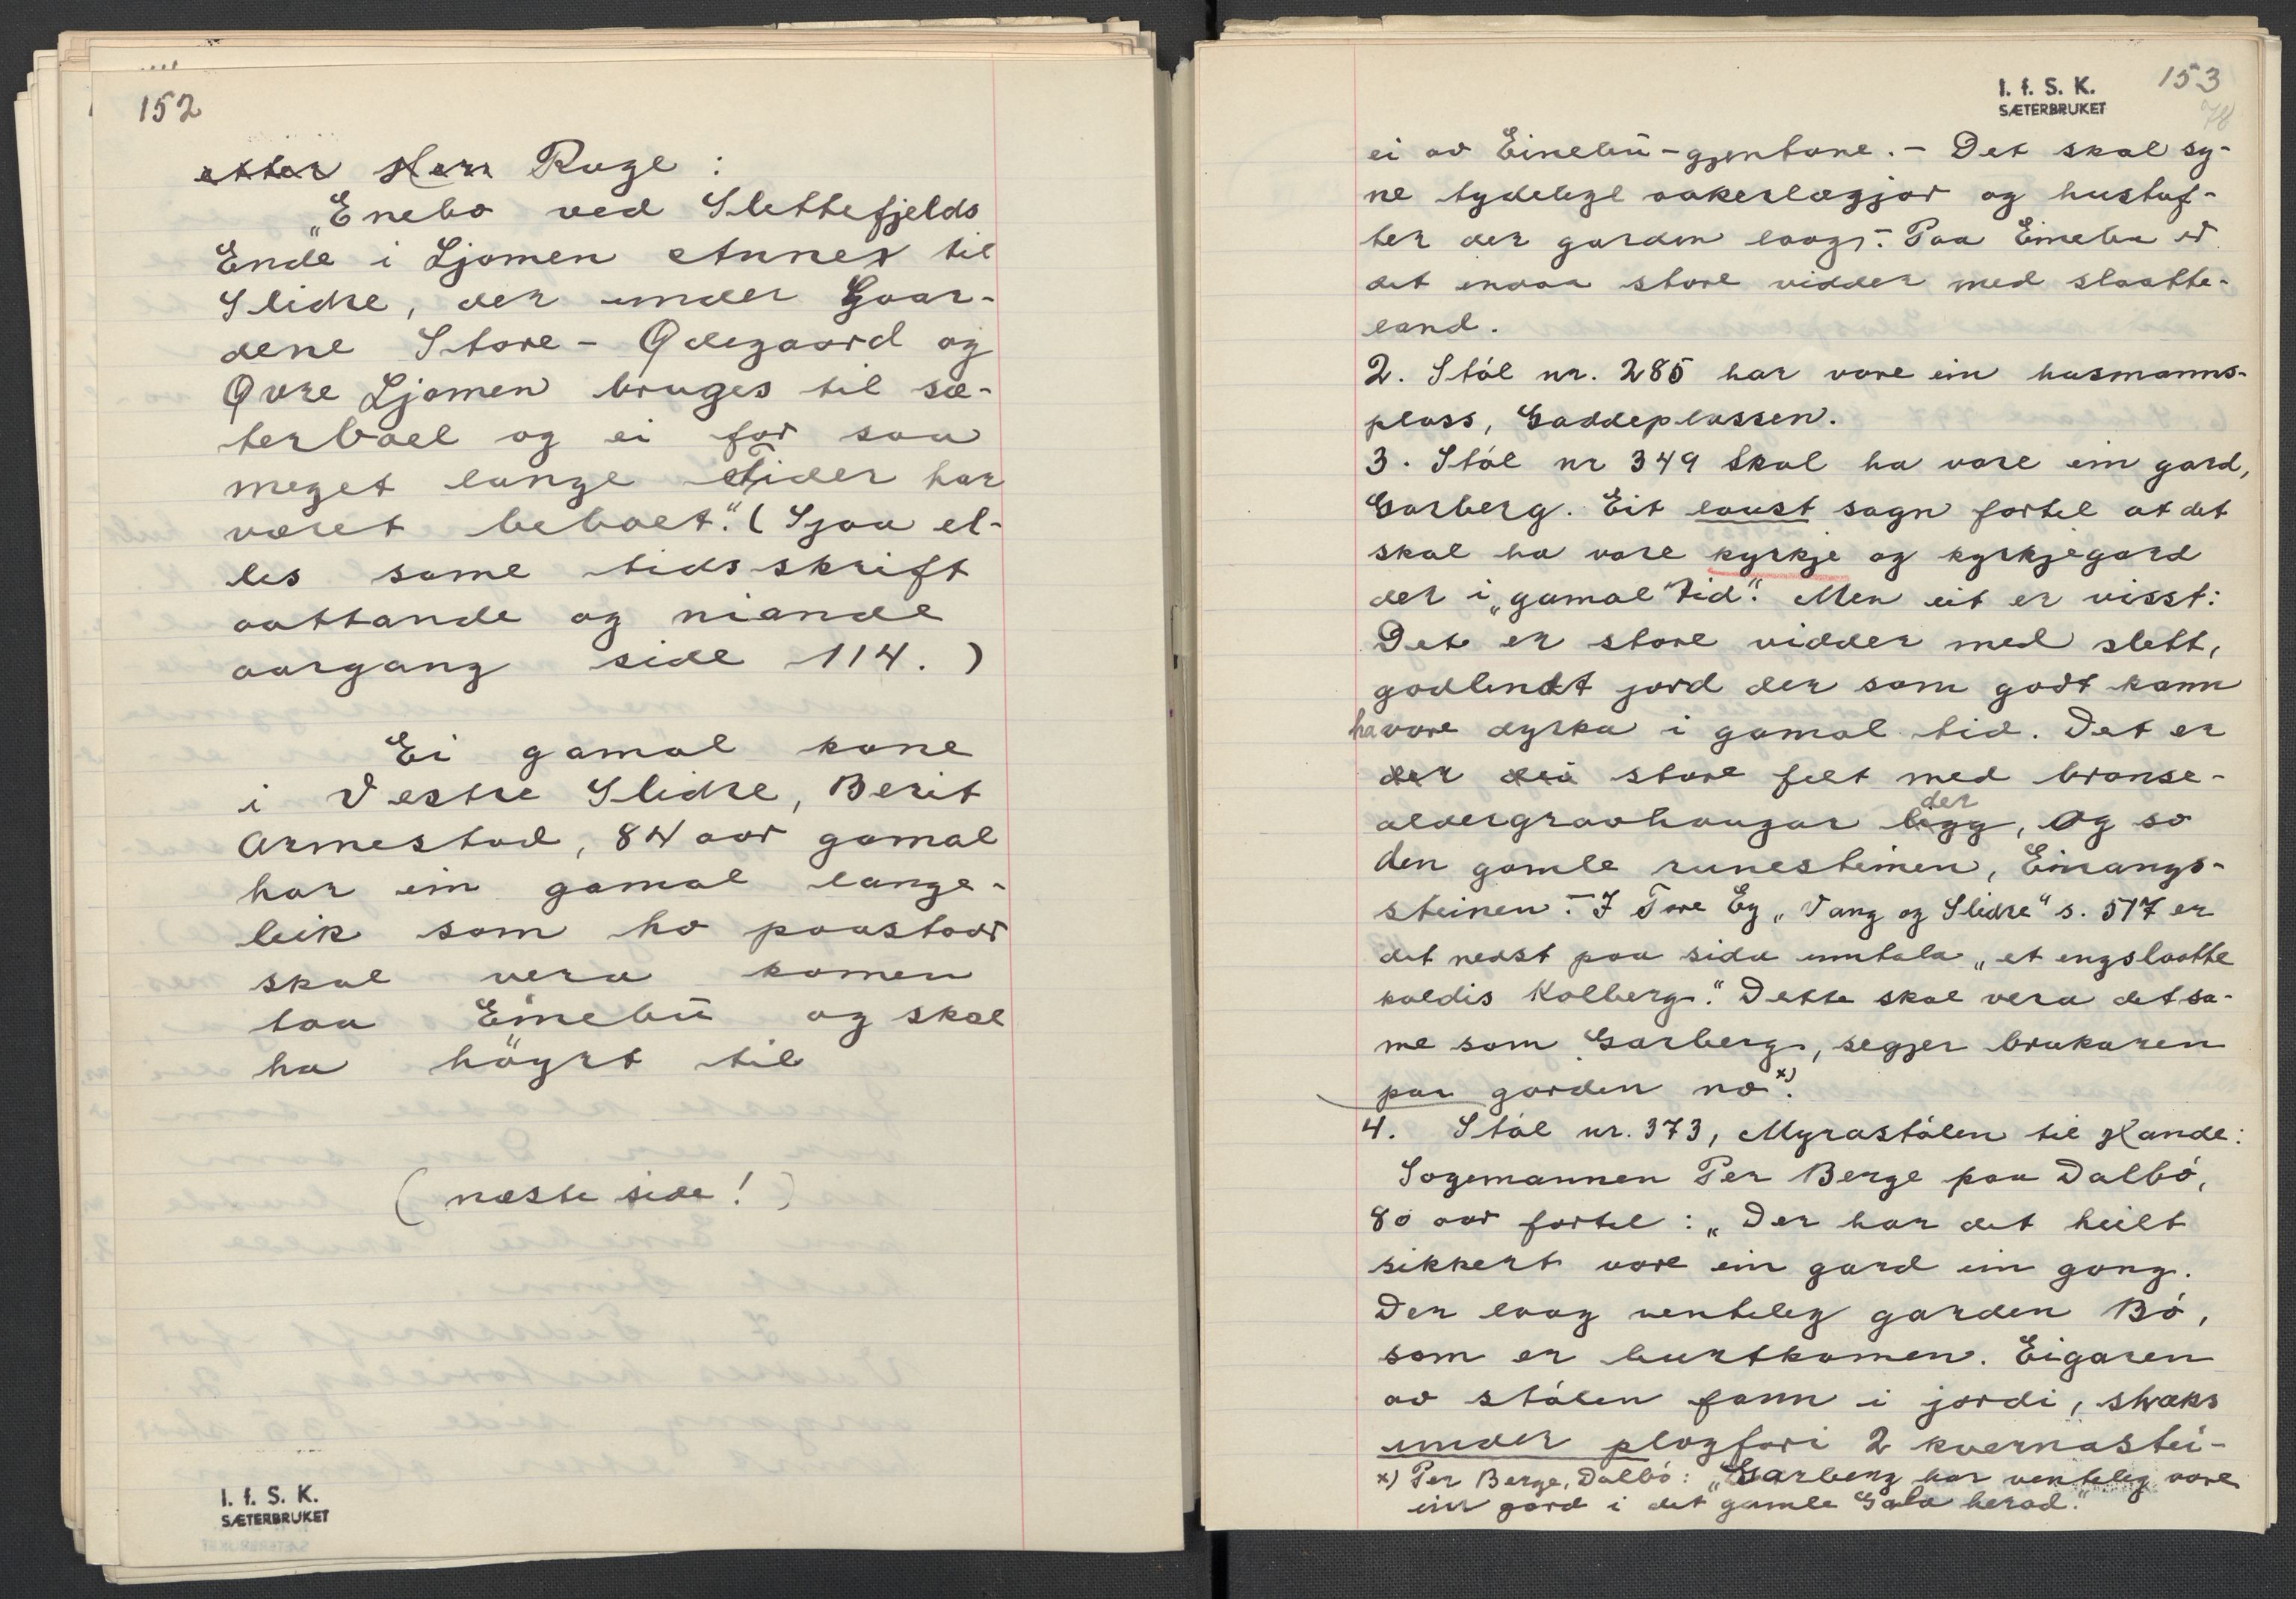 152
etter Herr Ruge:
„Enebo ved Slettefjelds
Ende i Ljomen Annex til
Slidre, der under Gaar-
dene Store-Ødegaard og
Øvre Ljomen bruges til sæ-
terboel og ei for saa
meget lange Tider har
været beboet." (Sjaa el-
les same tidsskrift
aattande og niande
aargang side 114.)
Ei gamal kone
i Vestre Slidre, Berit
Armestad, 84 aar gamal
har ein gamal lange-
leik som ho paastaar
skal vera komen
taa Einebū og skal
ha höyrt til
(næste side!)
I. f. S. K.
SÆTERBRUKET
I. f. S. K.
SÆTERBRUKET
153
78
ei av Einebū-gjentone. – Det skal sy-
ne tydelege aakerlægjor og hustuf-
ter der garden laag. – Paa Einebu er
det endaa store vidder med slaatte-
land.
2. Stól nr. 285 har vore ein husmanns-
plass, Gaddeplassen.
3. Stól nr 349 skal ha vore ein gard,
Garberg. Eit laust sagn fortel at det
skal ha vore kyrkje og kyrkjegard
der i „gamal tid". Men eit er visst:
Det er store vidder med slett,
godlendt jord der som godt kann
ha vore dyrka i gamal tid. Det er
der dei store felt med bronse-
aldergravhaugar ligg, og so
der
den gamle runesteinen, Einangs-
steinen. – I Tore Ey „Vang og Slidre" s. 517 er
det nedst paa sida umtala „et engslaatte
kaldis Kolberg." Dette skal vera det sa-
me som Garberg, segjer brukaren
paa garden no x).
4. Stól nr. 373, Myrastólen til Hande:
Sogemannen Per Berge paa Dalbó,
80 aar fortel: „Der har det heilt
sikkert vore ein gard ein gong.
Der laag venteleg garden Bó,
som er burtkomen. Eigaren
av stólen fann i jordi, straks
under plogfori 2 kvernastei-
x) Per Berge, Dalbó: „Garberg har venteleg vore
ein gard i det gamle Gala herad."